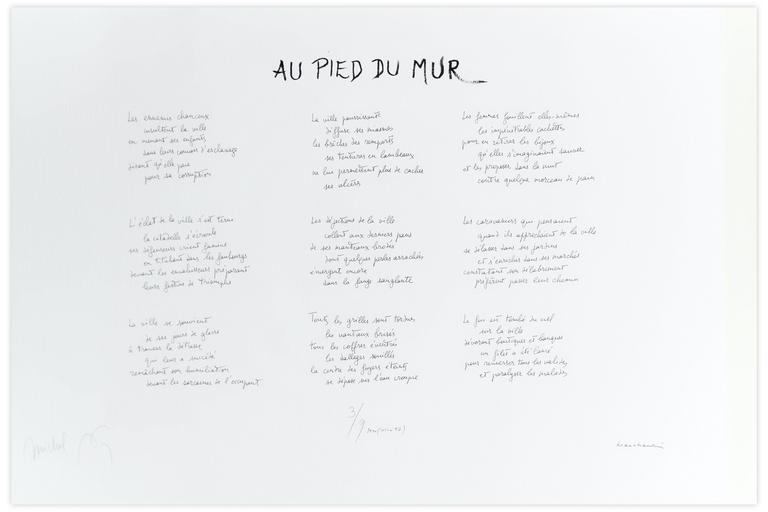 AU PIED DU MUR
Les ennemis chanceux
insultent la ville
en menant ses enfants
dans leurs convois d'esclavage
disant qu'elle paie
pour sa corruption
L'éclat de la ville s'est terni
la citadelle s'écroule
ses défenseurs crient famine
en titubant dans les faubourgs
devant les envahisseurs préparant
leurs festins de triomphe
La ville se souvient
de ses jours de gloire
à travers la détresse
qui leur a succédé
remâchant son humiliation
devant les sarcasmes de l'occupant
La ville pourrissante
diffuse ses miasmes
les brèches des remparts
ses tentures en lambeaux
ne lui permettent plus de cacher
ses ulcères
Les déjections de la ville
collent aux derniers pans
de ses manteaux brodés
dont quelques perles arrachées
émergent encore
dans la fange sanglante
Toutes les grilles sont tordues
les vantaux brisés
tous les coffres éventrés
les dallages souillés
la cendre des foyers éteints
se dépose sur l'eau croupie
Les femmes fouillent elles-mêmes
les impénétrables cachettes
pour en retirer les bijoux
qu'elles s'imaginaient sauver
et les proposer dans la nuit
contre quelque morceau de pain
Les caravaniers qui pensaient
quand ils approchaient de la ville
se délasser dans ses jardins
et s'enrichir dans ses marchés
constatant son délabrement
préfèrent passer leur chemin
Le feu est tombé du ciel
sur la ville
dévorant boutiques et banques
un filet a été lancé
pour renverser tous les valides
et paralyser les malades
3/9
Michel